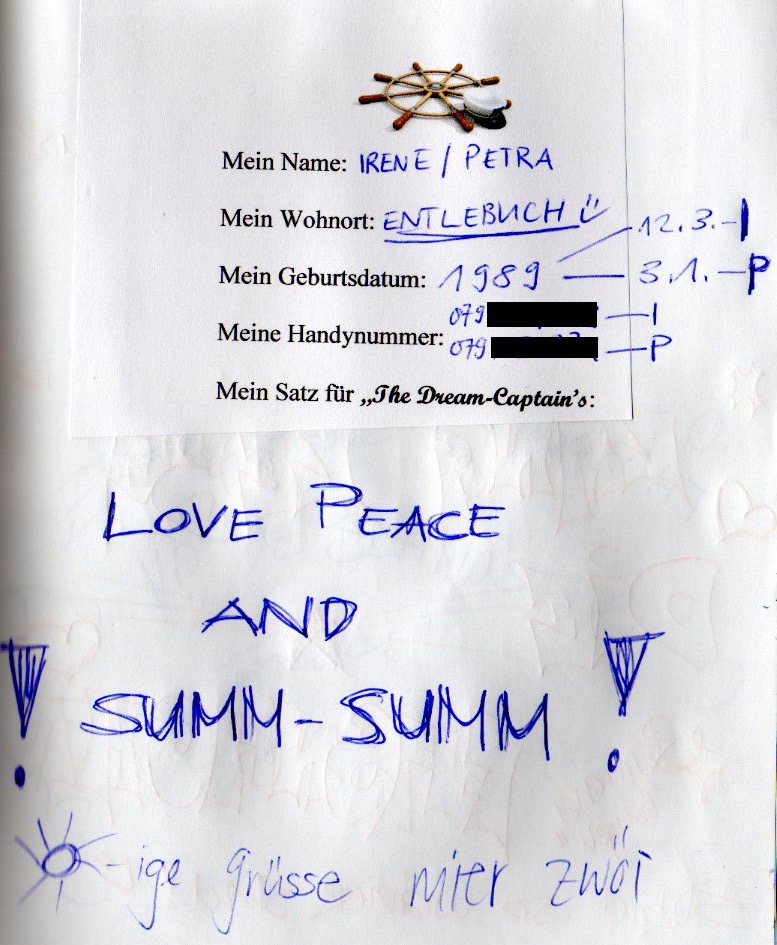 Mein Name: IRENE / PETRA
Mein Wohnort: ENTLEBUCH
12.3.-I
Mein Geburtsdatum: 1989
3.1.-P
Meine Handynummer:
079 -I
079 -P
Mein Satz für „The Dream-Captain's:
LOVE PEACE
AND
! SUMM-SUMM !
-ige grüsse mier zwöi